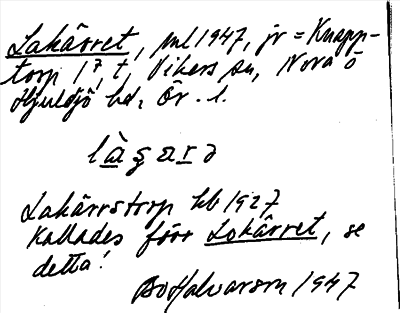 Lakärret, ml 1947, jr = Knapp-
torp 1⁷, t, Vikers sn, Nora o
Hjulsjö hd, Ör. l.
Lakärrstorp hb 1927
Kallades förr Lokärret, se
detta!
Bo Halvarson 1947